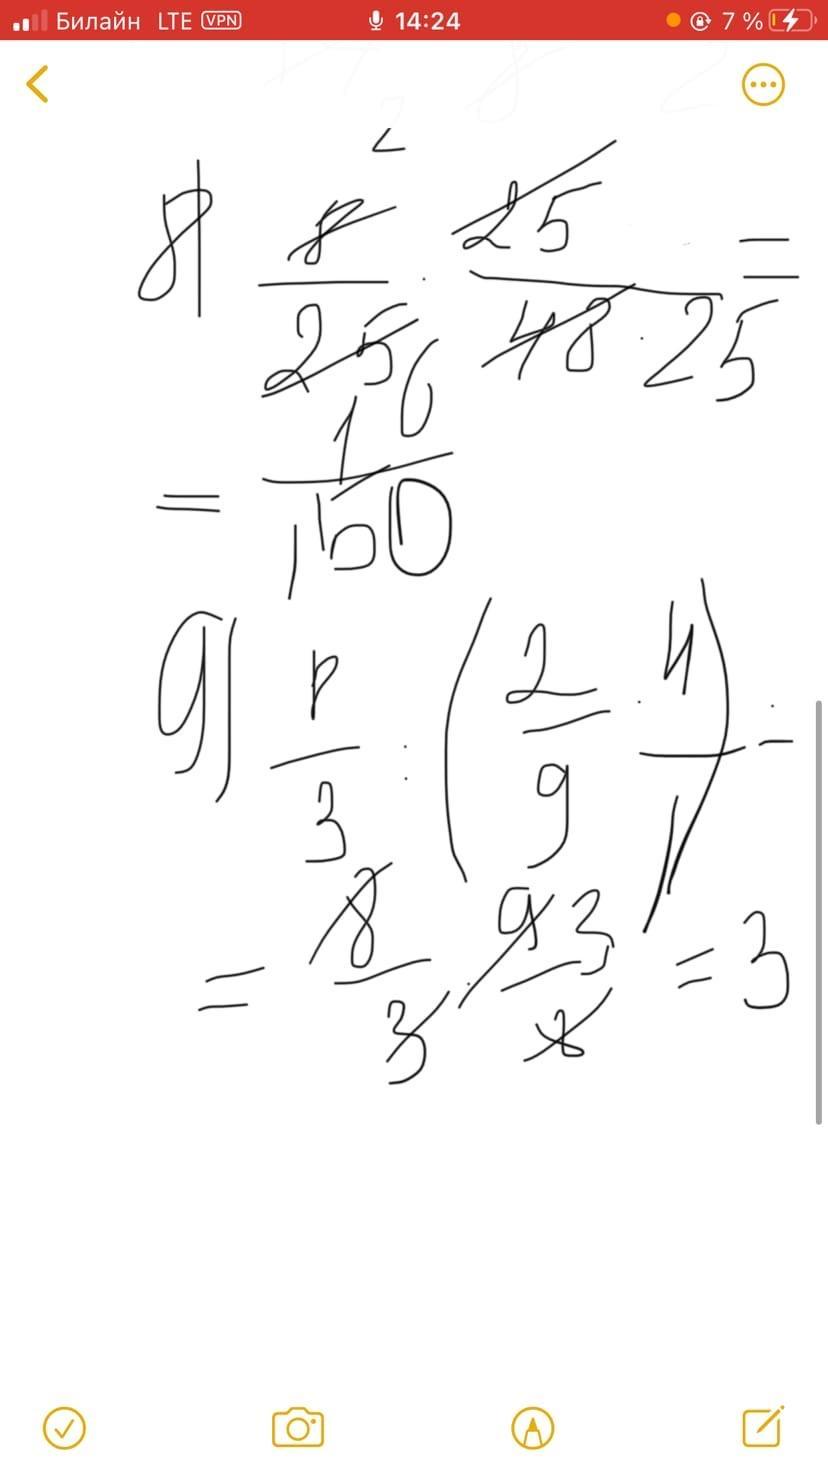 Билайн LTE VPN 14:24 7 %
2
8) 8/25 · 25/(48 · 25) =
6
= 1/150
9) 8/3 : (2/9 · 4/1) =
= 8/3 · 9 3/8 = 3